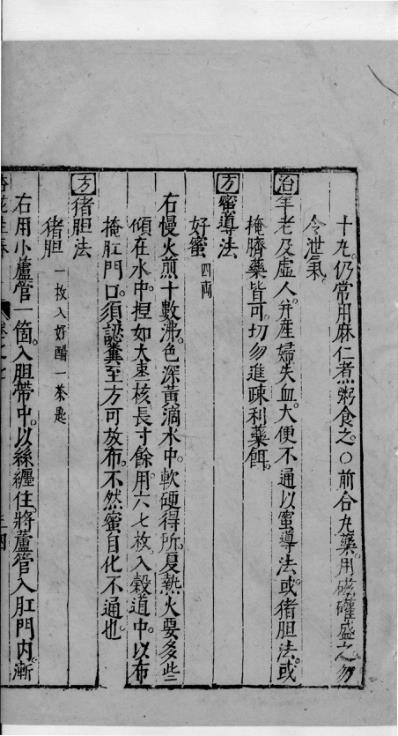 十丸仍常用麻仁煮粥食之○前合丸藥用磁礶盛之勿
令泄氣
治年老及虛人并産婦失血大便不通以蜜導法或猪胆法或
掩臍藥皆可切勿進疎利藥餌
方蜜導法
好蜜四両
右慢火煎十數沸色深黃滴水中軟硬得所夏熱火要多些
傾在水中捏如大棗核長寸餘用六七枚入穀道中以布
掩肛門口須認糞至方可放布不然蜜自化不通也
方猪胆法
猪胆一枚入好醋一茶匙
右用小蘆管一箇入胆帶中以絲纏住將蘆管入肛門内漸